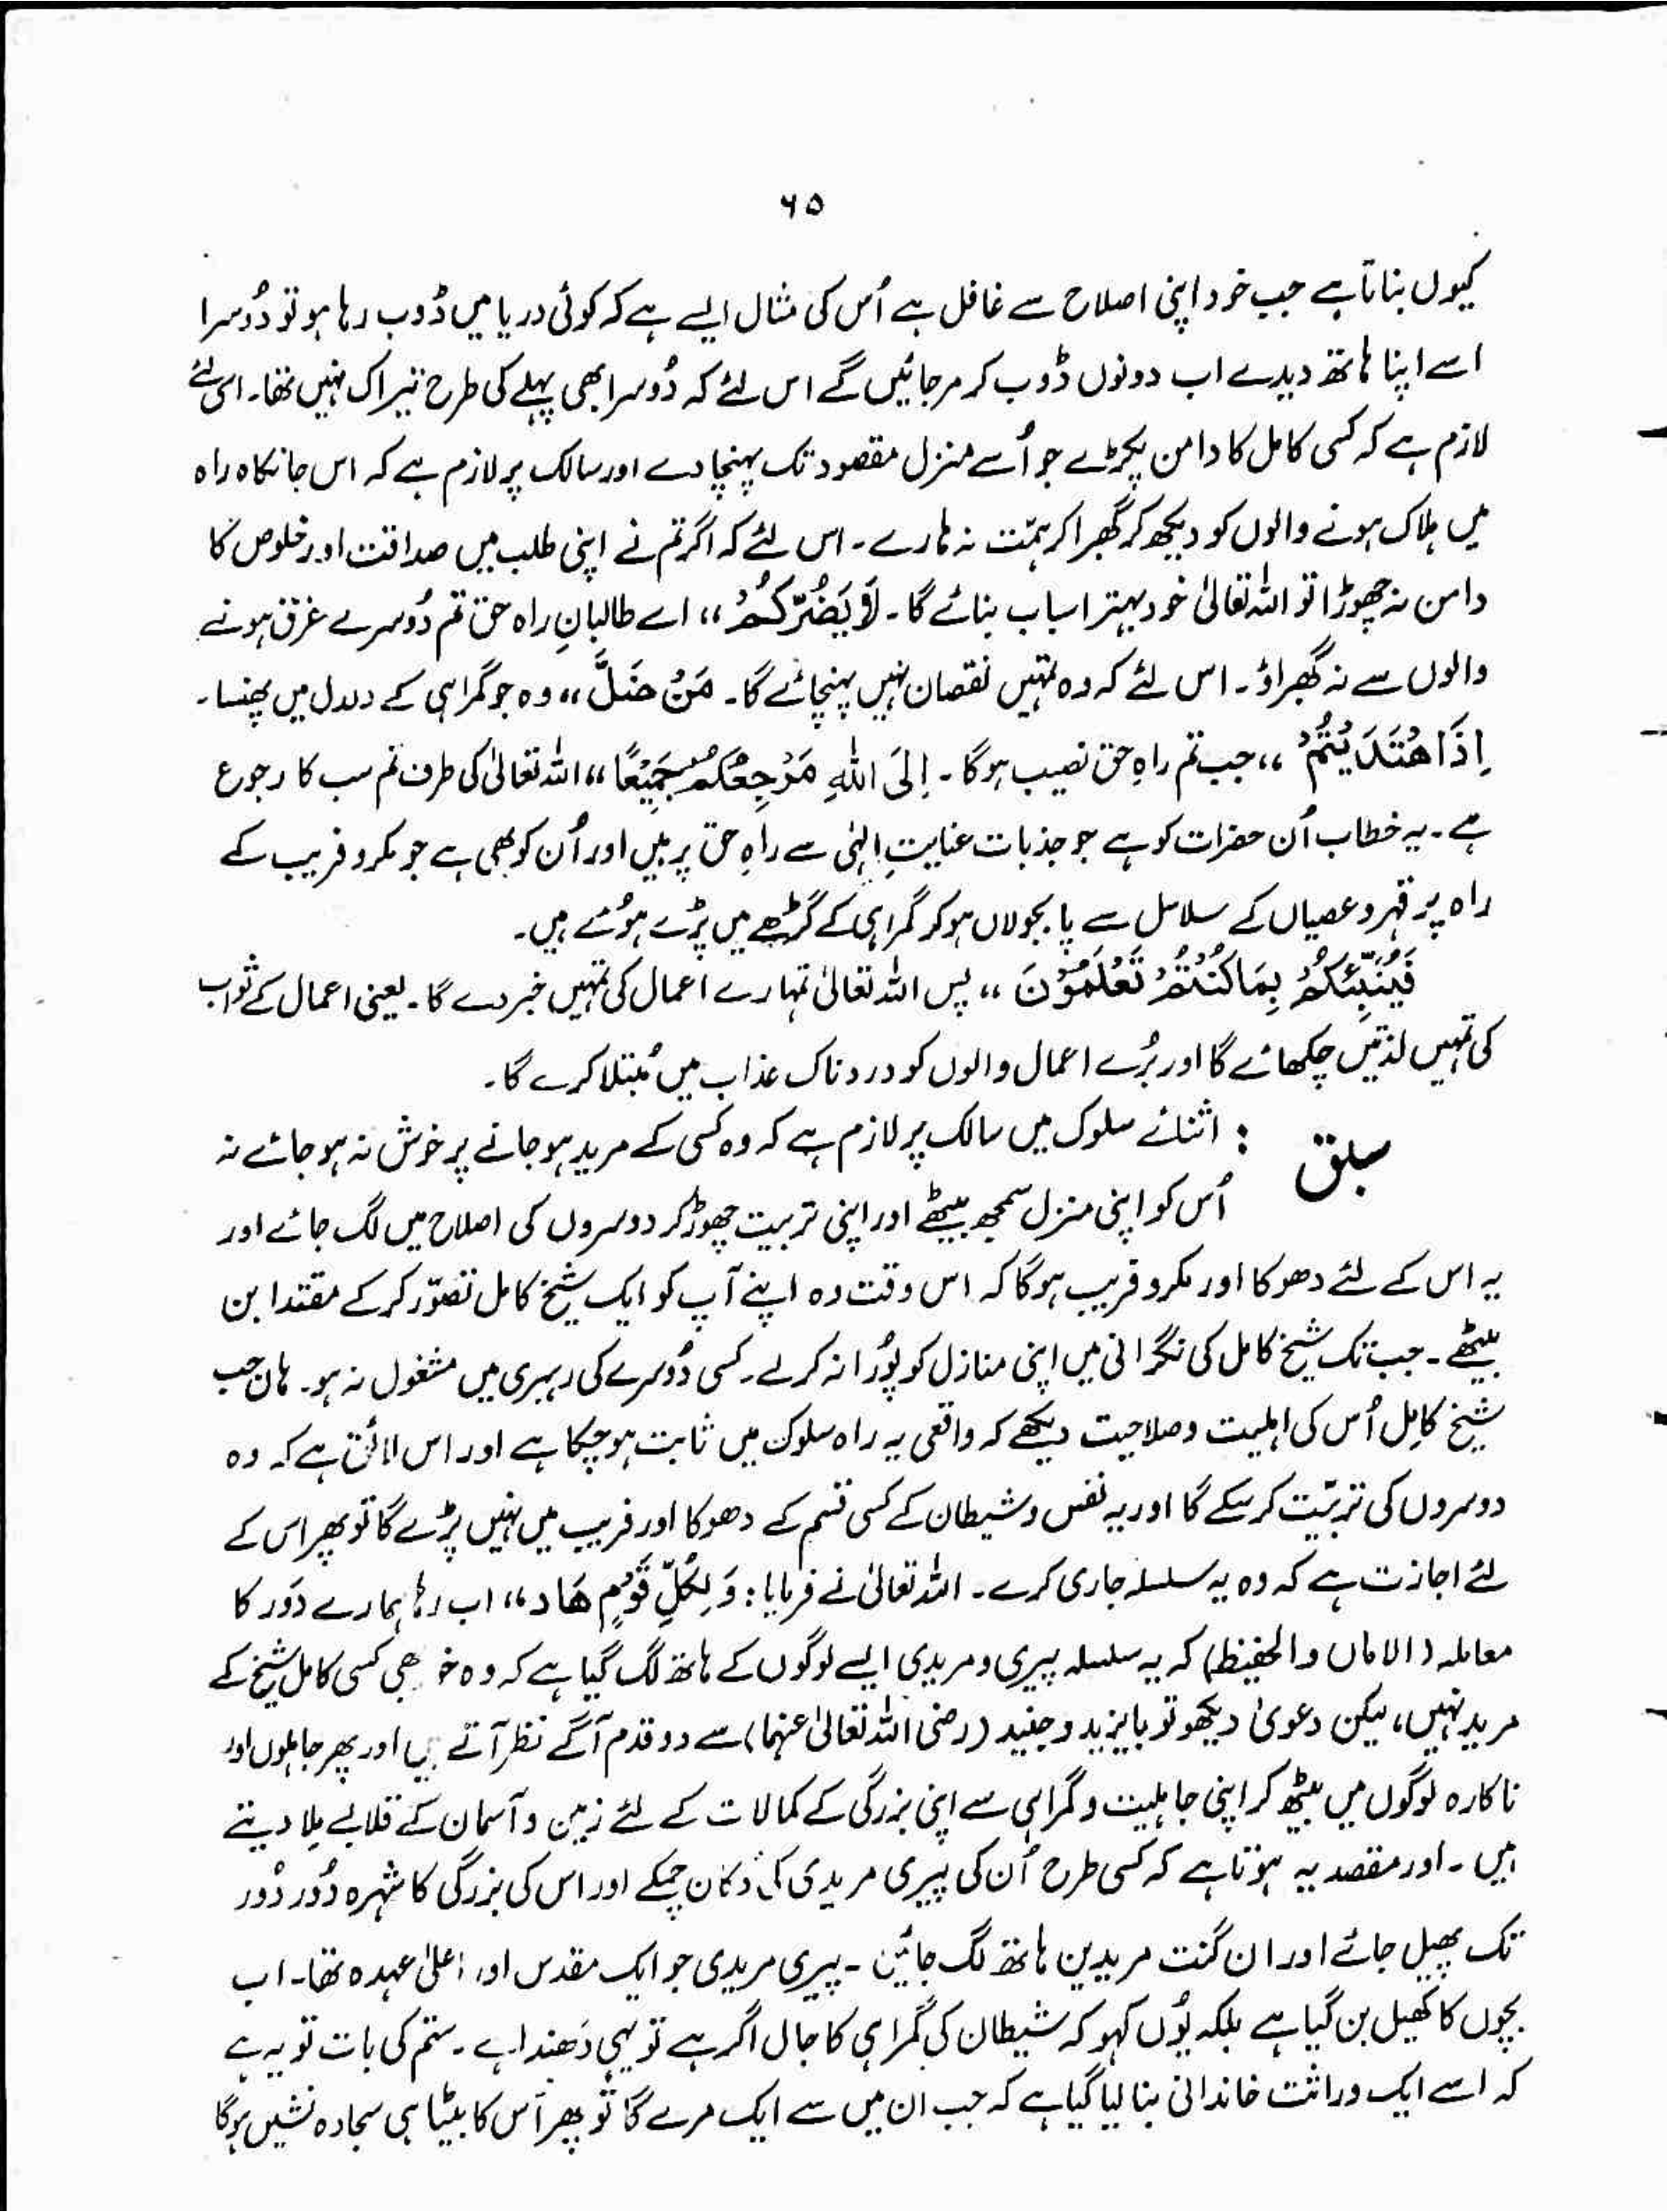 ۶۵
کیوں بناتا ہے جب خود اپنی اصلاح سے غافل ہے اُس کی مثال ایسے ہے کہ کوئی دریا میں ڈوب رہا ہو تو دُوسرا
اسے اپنا ہاتھ دیدے اب دونوں ڈوب کر مرجائیں گے اس لئے کہ دُوسرا بھی پہلے کی طرح تیراک نہیں تھا۔ اسی لئے
لازم ہے کہ کسی کامل کا دامن پکڑے جو اُسے منزل مقصود تک پہنچا دے اور سالک پر لازم ہے کہ اس جانکاہ راہ
میں ہلاک ہونے والوں کو دیکھ کر گھبرا کر ہمّت نہ ہارے۔ اس لئے کہ اگر تم نے اپنی طلب میں صداقت اور خلوص کا
دامن نہ چھوڑا تو اللہ تعالیٰ خود بہتر اسباب بنائے گا۔ لَا یَضُرُّکُمْ ،، اے طالبانِ راہ حق تم دُوسرے غرق ہونے
والوں سے نہ گھبراؤ۔ اس لئے کہ وہ تمہیں نقصان نہیں پہنچائے گا۔ مَنْ ضَلَّ ،، وہ جو گمراہی کے دلدل میں پھنسا۔
اِذَا هْتَدَیْتُمْ ،، جب تم راہِ حق نصیب ہوگا۔ اِلَی اللهِ مَرْجِعُکُمْ جَمِیْعًا ،، اللہ تعالیٰ کی طرف تم سب کا رجوع
ہے۔ یہ خطاب اُن حضرات کو ہے جو جذبات عنایتِ الٰہی سے راہِ حق پر ہیں اور اُن کو بھی ہے جو مکر و فریب کے
راہ پر قہر و عصیاں کے سلاسل سے پا بجولاں ہوکر گمراہی کے گڑھے میں پڑے ہوُئے ہیں۔
فَیُنَبِّئُکُمْ بِمَا کُنْتُمْ تَعْلَمُوْنَ ،، پس اللہ تعالیٰ تمہارے اعمال کی تمہیں خبر دے گا۔ یعنی اعمال کے ثواب
کی تمہیں لذتیں چکھائے گا اور بُرے اعمال والوں کو دردناک عذاب میں مُبتلا کرے گا۔
سبق : اثنائے سلوک میں سالک پر لازم ہے کہ وہ کسی کے مرید ہو جانے پر خوش نہ ہو جائے نہ
اُس کو اپنی منزل سمجھ بیٹھے اور اپنی تربیت چھوڑ کر دوسروں کی اصلاح میں لگ جائے اور
یہ اس کے لئے دھوکا اور مکر و فریب ہوگا کہ اس وقت وہ اپنے آپ کو ایک شیخ کامل تصوّر کرکے مقتدا بن
بیٹھے۔ جب تک شیخ کامل کی نگرانی میں اپنی منازل کو پُورا نہ کرلے۔ کسی دُوسرے کی رہبری میں مشغول نہ ہو۔ ہاں جب
شیخ کامِل اُس کی اہلیت و صلاحیت دیکھے کہ واقعی یہ راہ سلوک میں ثابت ہو چکا ہے اور اس لائق ہے کہ وہ
دوسروں کی تربیّت کر سکے گا اور یہ نفس و شیطان کے کسی قسم کے دھوکا اور فریب میں نہیں پڑے گا تو پھر اس کے
لئے اجازت ہے کہ وہ یہ سلسلہ جاری کرے۔ اللہ تعالیٰ نے فرمایا: وَ لِکُلِّ قَوْمٍ هَاد ،، اب رہا ہمارے دَور کا
معاملہ (الاماں والحفیظ) کہ یہ سلسلہ پیری و مریدی ایسے لوگوں کے ہاتھ لگ گیا ہے کہ وہ خو بھی کسی کامل شیخ کے
مرید نہیں، لیکن دعویٰ دیکھو تو بایزید و جنید (رضی اللہ تعالیٰ عنہما) سے دو قدم آگے نظر آتے ہیں اور پھر جاہلوں اور
ناکارہ لوگوں میں بیٹھ کر اپنی جاہلیت و گمراہی سے اپنی بزرگی کے کمالات کے لئے زمین و آسمان کے قلابے مِلا دیتے
ہیں۔ اور مقصد یہ ہوتا ہے کہ کسی طرح اُن کی پیری مریدی کی دکان چمکے اور اس کی بزرگی کا شہرہ دُور دُور
تک پھیل جائے اور ان گنت مریدین ہاتھ لگ جائیں۔ پیری مریدی جو ایک مقدس اور اعلیٰ عہدہ تھا۔ اب
بچوں کا کھیل بن گیا ہے بلکہ یُوں کہو کہ شیطان کی گمراہی کا جال اگر ہے تو یہی دَھندا ہے۔ ستم کی بات تو یہ ہے
کہ اسے ایک وراثت خاندانی بنا لیا گیا ہے کہ جب ان میں سے ایک مرے گا تو پھر اُس کا بیٹا ہی سجادہ نشیں ہوگا